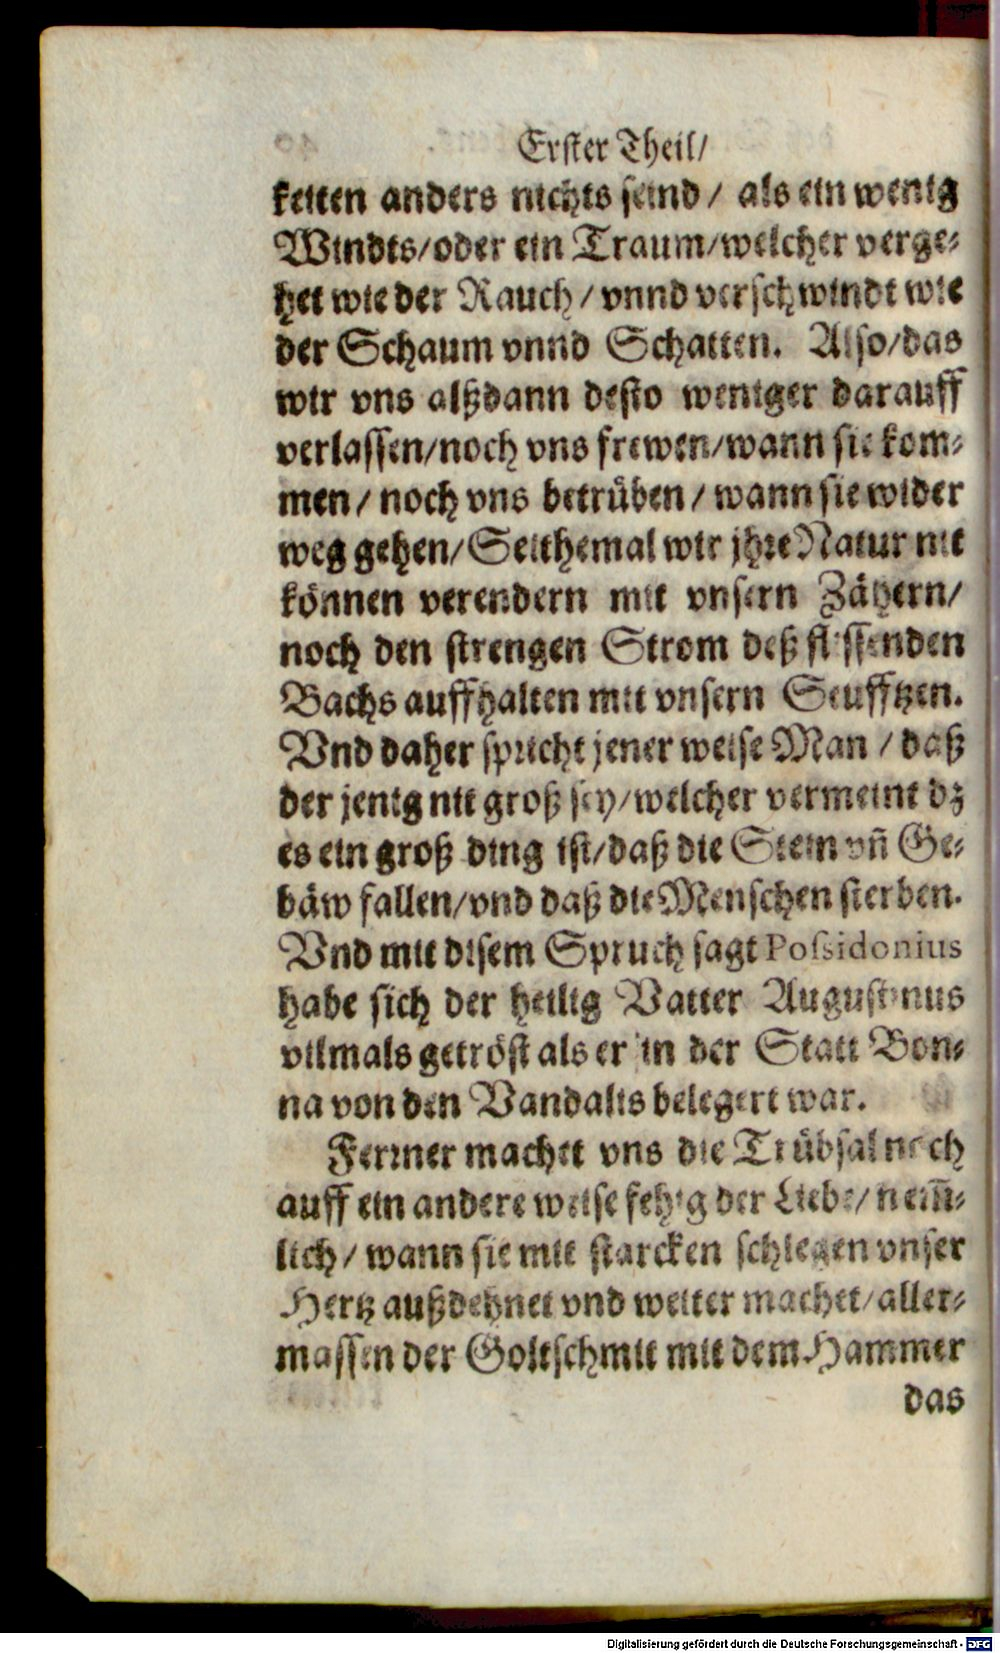 Erster Theil/
keiten anders nichts seind / als ein wenig
Windts/oder ein Traum/welcher verge-
het wie der Rauch / vnnd verschwindt wie
der Schaum vnnd Schatten. Also/das
wir vns alßdann desto weniger darauff
verlassen/noch vns frewen/wann sie kom-
men / noch vns betrüben / wann sie wider
weg gehen/Seithemal wir jhre Natur nit
können verendern mit vnsern Zähern/
noch den strengen Strom deß fliessenden
Bachs auffhalten mit vnsern Seufftzen.
Vnd daher spricht jener weise Man / daß
der jenig nit groß sey/welcher vermeint dz
es ein groß ding ist/daß die Stein vñ Ge-
bäw fallen/vnd daß die Menschen sterben.
Vnd mit disem Spruch sagt Possidonius
habe sich der heilig Vatter Augustinus
vilmals getröst als er in der Statt Bon-
na von den Vandalis belegert war.
Ferrner machet vns die Trübsal noch
auff ein andere weise fehig der Liebe/nem̃-
lich / wann sie mit starcken schlegen vnser
Hertz außdehnet vnd weiter machet/aller-
massen der Goltschmit mit dem Hammer
das
Digitalisierung gefördert durch die Deutsche Forschungsgemeinschaft - DFG